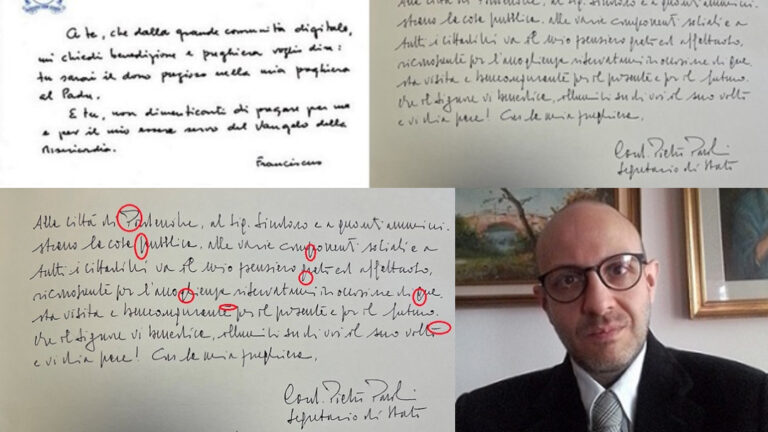 A te, che dalla grande comunità digitale,
mi chiedi benedizione e preghiera voglio dire:
tu sarai il dono prezioso nella mia preghiera
al Padre.
E tu, non dimenticarti di pregare per me
e per il mio essere servo del Vangelo della
Misericordia.
Franciscus
Alla Città di al Sig. Sindaco e a quanti ammini-
strano la cosa pubblica, alle varie componenti sociali e a
tutti i cittadini va il mio pensiero grato ed affettuoso,
riconoscente per l'accoglienza riservatami in occasione di que-
sta visita e beneaugurante per il presente e per il futuro.
Che il Signore vi benedica, illumini su di voi il suo volto
e vi dia pace! Con la mia preghiera,
Card. Pietro Parolin
Segretario di Stato
Alla Città di al Sig. Sindaco e a quanti ammini-
strano la cosa pubblica, alle varie componenti sociali e a
tutti i cittadini va il mio pensiero grato ed affettuoso,
riconoscente per l'accoglienza riservatami in occasione di que-
sta visita e beneaugurante per il presente e per il futuro.
Che il Signore vi benedica, illumini su di voi il suo volto
e vi dia pace! Con la mia preghiera,
Card. Pietro Parolin
Segretario di Stato